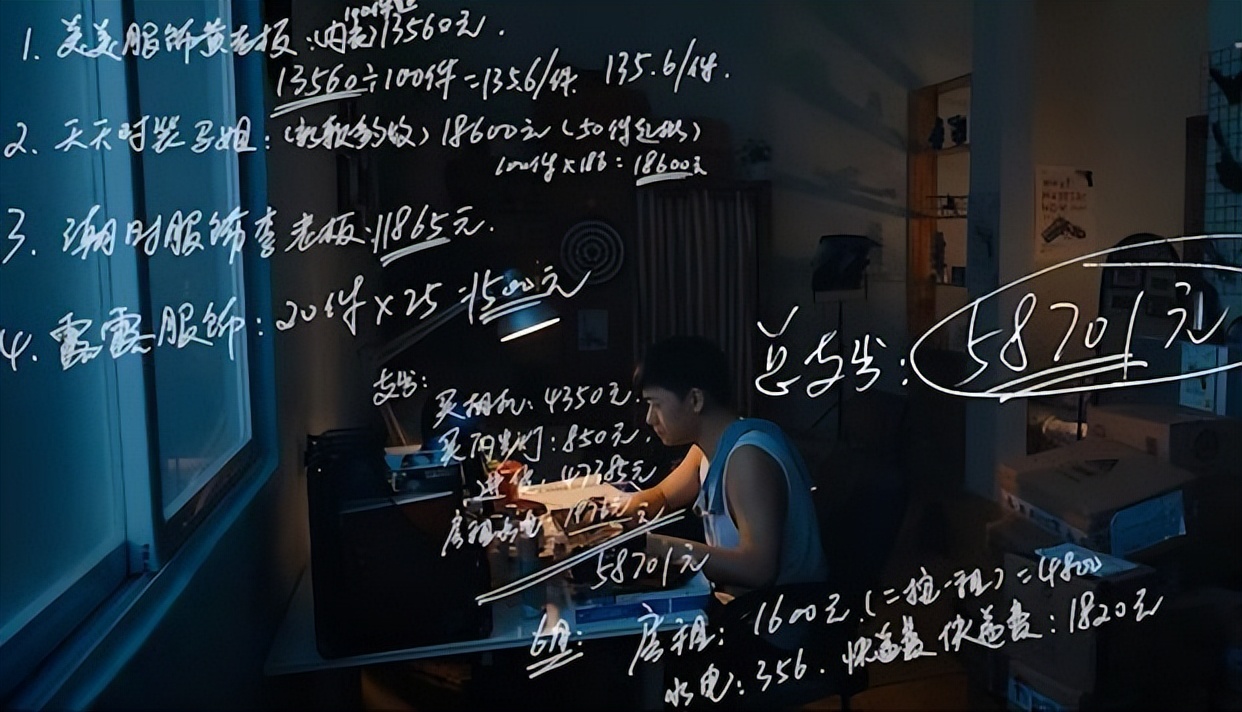 1. 美美服饰黄老板:(内衣)13560元.
13560÷100件=135.6/件. 135.6/件.
2. 天天时装马姐:(新款多收)18600元(50件起批)
100件×186=18600元
3. 潮时服饰李老板:11865元.
4. 露露服饰:20件×25=1500元
总支出:58701元
支出:
买相机:4350元.
:850元.
进货:47385元
房租水电:
58701元
6月: 房租:1600元.(二押一租)=4800
水电:356. 快递费 快递费:1820元